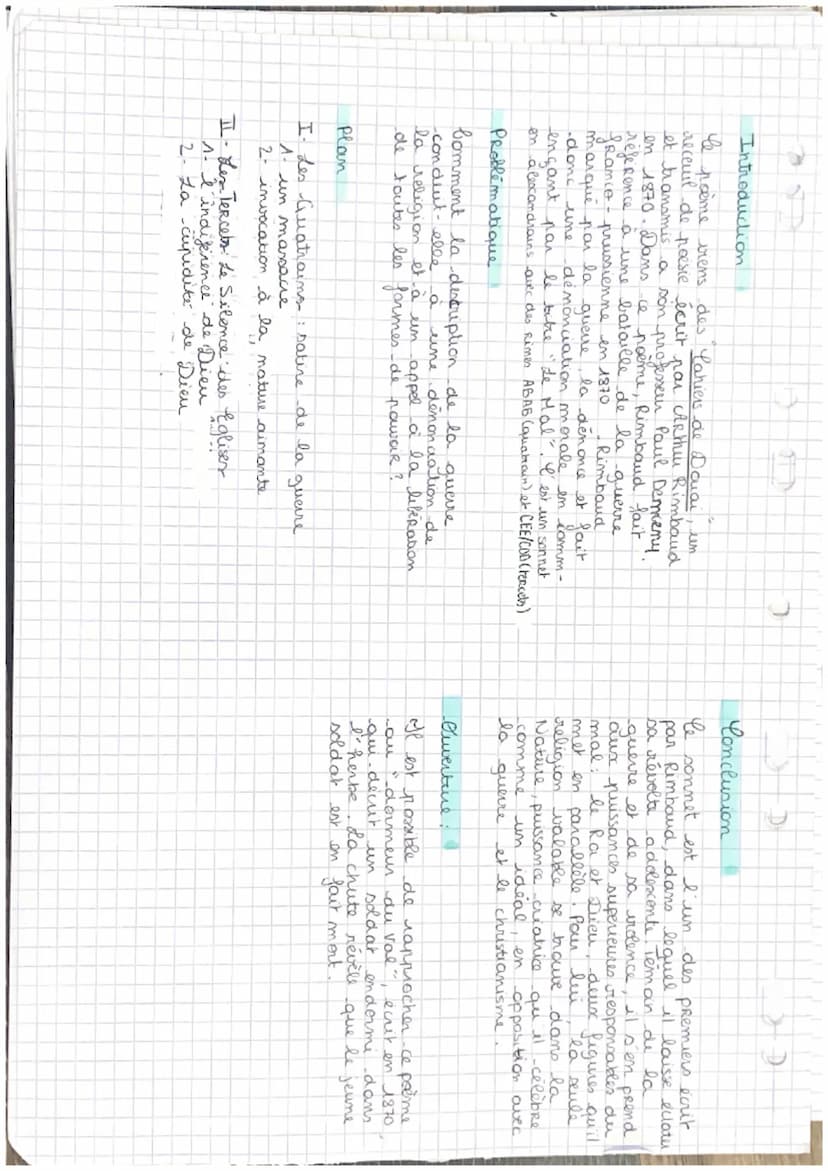 Introduction
Le poème viens des "Cahiers de Douai", un
receuil de poésie écrit par Arthur Rimbaud
et transmis a son professeur Paul Demeny
en 1870. Dans ce poème, Rimbaud fait
référence à une bataille de la guerre
franco-prussienne en 1870. Rimbaud
marqué par la guerre, la dénonce et fait
donc une dénonciation morale en comm-
ençant par le titre "Le Mal". C'est un sonnet
en alexandrins avec des rimes ABAB (quatrain) et CEE/CDD (tercets)
Problématique
Comment la description de la guerre
conduit-elle à une dénonciation de
la religion et à un appel à la libération
de toutes les formes de pouvoir ?
Plan
I- Les Quatrains : satire de la guerre
1- un massacre
2- invocation à la nature aimante
II- Les Tercets : Le Silence des Eglises
1- l'indiférence de Dieu
2- La cupidité de Dieu
Conclusion
Ce sonnet est l'un des premiers écrit
par Rimbaud, dans lequel il laisse éclater
sa révolte adolescente. Témoin de la
guerre et de sa violence, il s'en prend
aux puissances supérieures responsables du
mal : le Roi et Dieu, deux figures qu'il
met en parallèle. Pour lui, la seule
religion valable se trouve dans la
Nature, puissance créatrice qu'il célèbre
comme un idéal, en opposition avec
la guerre et le christianisme.
Ouverture :
Il est possible de rapprocher ce poème
au "dormeur du Val", écrit en 1870,
qui décrit un soldat endormi dans
l'herbe. La chute révèle que le jeune
soldat est en fait mort.